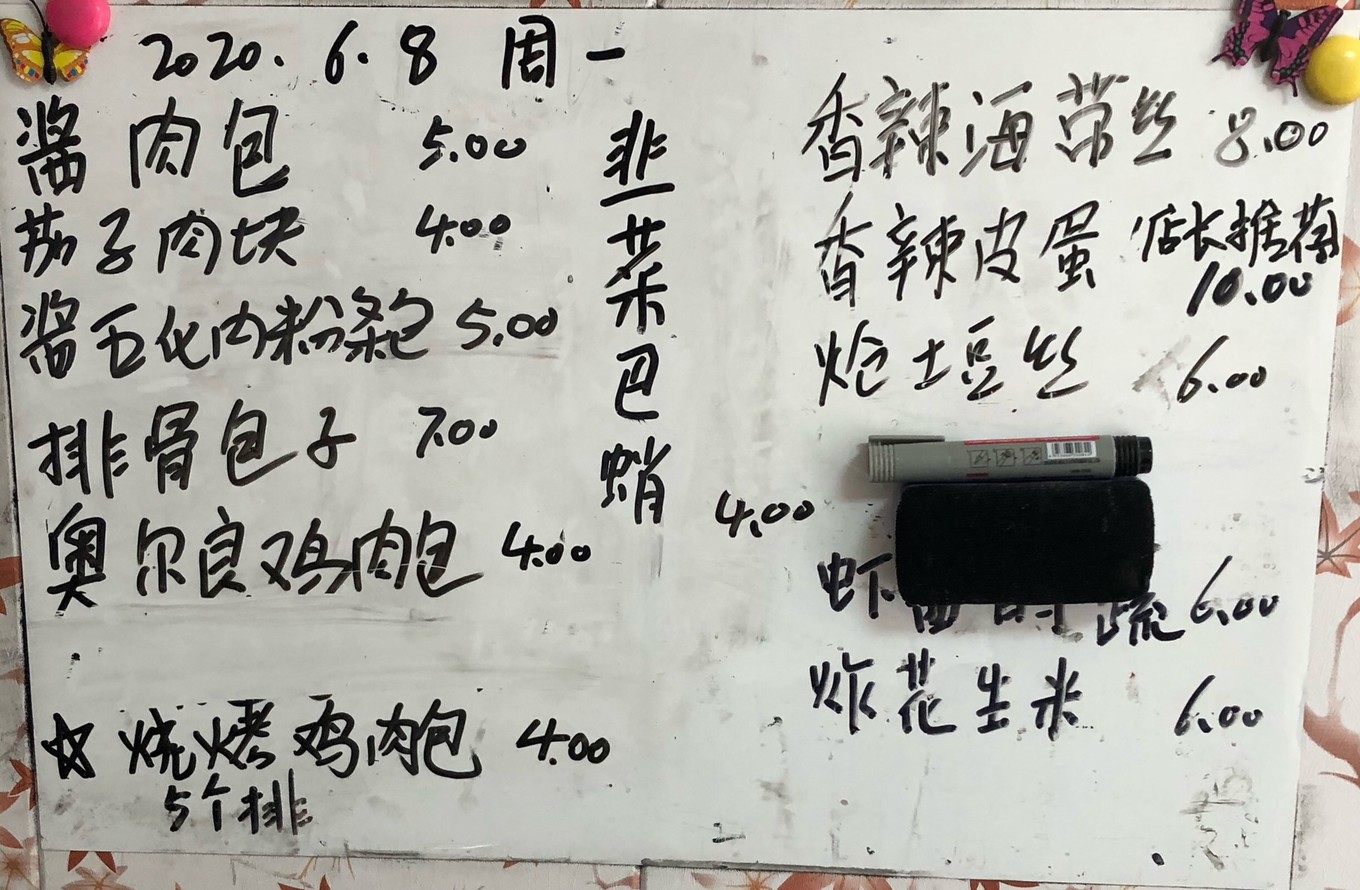 2020.6.8 周一
酱肉包 5.00
茄子肉块 4.00
酱五化肉粉条包 5.00
排骨包子 7.00
奥尔良鸡肉包 4.00
☆烧烤鸡肉包 4.00
5个排
韭菜巴蛸 4.00
香辣海带丝 8.00
香辣皮蛋 店长推荐
10.00
炝土豆丝 6.00
虾 蔬 6.00
炸花生米 6.00